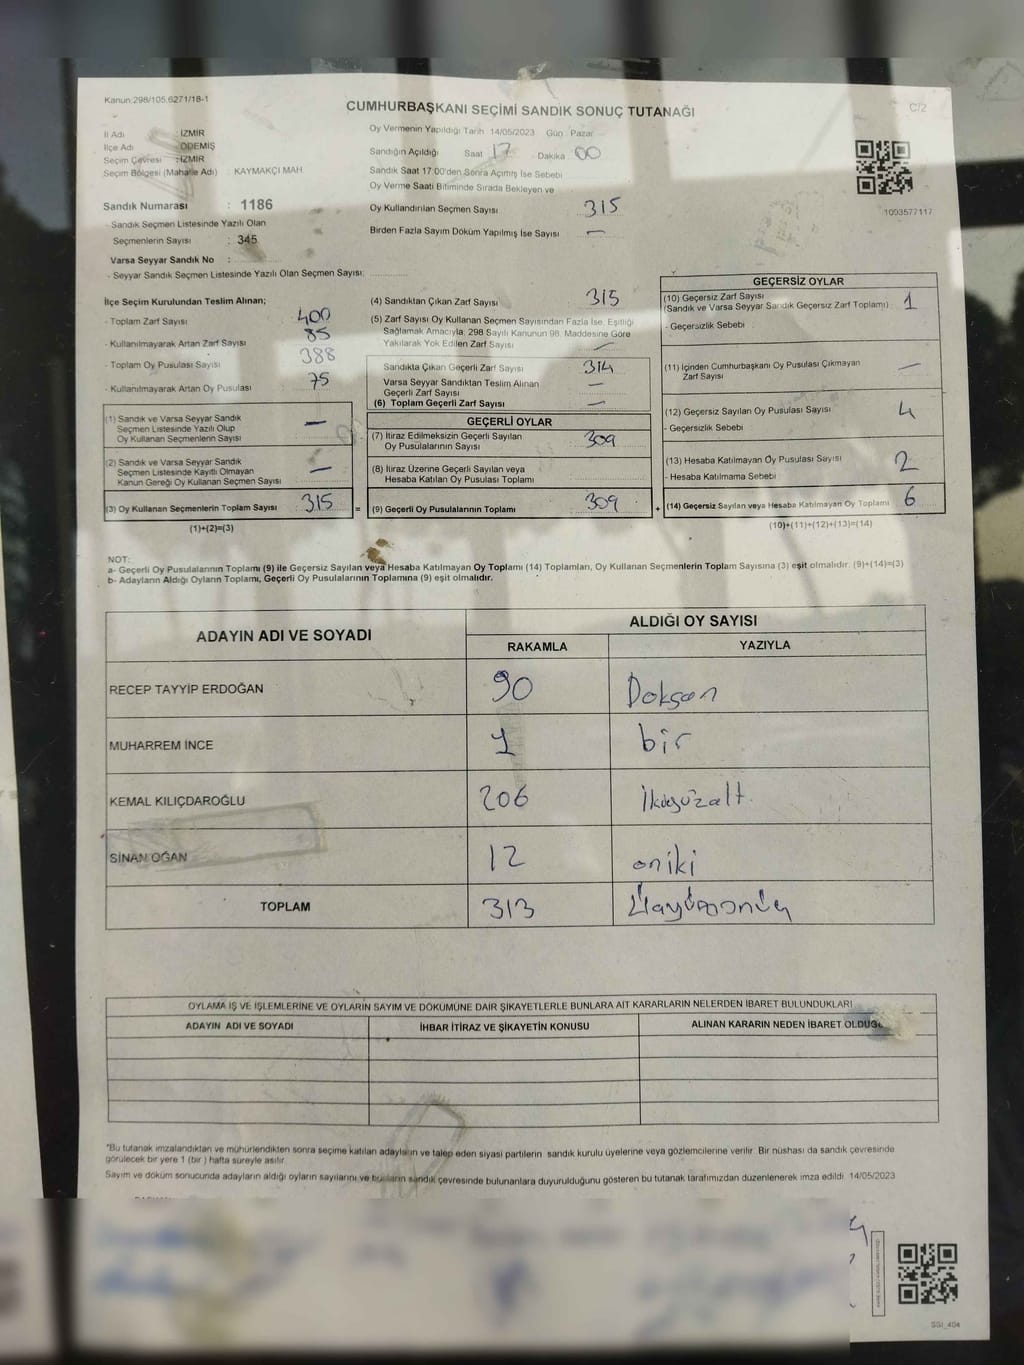 Kanun:298/105.6271/18-1
CUMHURBAŞKANI SEÇİMİ SANDIK SONUÇ TUTANAĞI
C/2
İl Adı : İZMİR
İlçe Adı : ÖDEMİŞ
Seçim Çevresi : İZMİR
Seçim Bölgesi (Mahalle Adı) : KAYMAKÇI MAH.
Sandık Numarası : 1186
Sandık Seçmen Listesinde Yazılı Olan
Seçmenlerin Sayısı : 345
Varsa Seyyar Sandık No :
- Seyyar Sandık Seçmen Listesinde Yazılı Olan Seçmen Sayısı:
Oy Vermenin Yapıldığı Tarih 14/05/2023 Gün Pazar
Sandığın Açıldığı Saat 17 Dakika 00
Sandık Saat 17:00'den Sonra Açımış İse Sebebi
Oy Verme Saati Bitiminde Sırada Bekleyen ve
Oy Kullandırılan Seçmen Sayısı 315
Birden Fazla Sayım Döküm Yapılmış İse Sayısı —
1093577117
İlçe Seçim Kurulundan Teslim Alınan;
- Toplam Zarf Sayısı 400
- Kullanılmayarak Artan Zarf Sayısı 85
- Toplam Oy Pusulası Sayısı 388
- Kullanılmayarak Artan Oy Pusulası 75
(1) Sandık ve Varsa Seyyar Sandık
Seçmen Listesinde Yazılı Olup
Oy Kullanan Seçmenlerin Sayısı —
(2) Sandık ve Varsa Seyyar Sandık
Seçmen Listesinde Kayıtlı Olmayan
Kanun Gereği Oy Kullanan Seçmen Sayısı —
(3) Oy Kullanan Seçmenlerin Toplam Sayısı 315 =
(1)+(2)=(3)
(4) Sandıktan Çıkan Zarf Sayısı 315
(5) Zarf Sayısı Oy Kullanan Seçmen Sayısından Fazla İse, Eşitliği
Sağlamak Amacıyla, 298 Sayılı Kanunun 98. Maddesine Göre
Yakılarak Yok Edilen Zarf Sayısı —
Sandıkta Çıkan Geçerli Zarf Sayısı 314
Varsa Seyyar Sandıktan Teslim Alınan
Geçerli Zarf Sayısı —
(6) Toplam Geçerli Zarf Sayısı —
GEÇERLİ OYLAR
(7) İtiraz Edilmeksizin Geçerli Sayılan
Oy Pusulalarının Sayısı 309
(8) İtiraz Üzerine Geçerli Sayılan veya
Hesaba Katılan Oy Pusulası Toplamı
(9) Geçerli Oy Pusulalarının Toplamı 309 +
GEÇERSİZ OYLAR
(10) Geçersiz Zarf Sayısı 1
(Sandık ve Varsa Seyyar Sandık Geçersiz Zarf Toplamı)
- Geçersizlik Sebebi
(11) İçinden Cumhurbaşkanı Oy Pusulası Çıkmayan
Zarf Sayısı —
(12) Geçersiz Sayılan Oy Pusulası Sayısı 4
- Geçersizlik Sebebi
(13) Hesaba Katılmayan Oy Pusulası Sayısı 2
- Hesaba Katılmama Sebebi
(14) Geçersiz Sayılan veya Hesaba Katılmayan Oy Toplamı 6
(10)+(11)+(12)+(13)=(14)
NOT:
a- Geçerli Oy Pusulalarının Toplamı (9) ile Geçersiz Sayılan veya Hesaba Katılmayan Oy Toplamı (14) Toplamları, Oy Kullanan Seçmenlerin Toplam Sayısına (3) eşit olmalıdır. (9)+(14)=(3)
b- Adayların Aldığı Oyların Toplamı, Geçerli Oy Pusulalarının Toplamına (9) eşit olmalıdır.
ADAYIN ADI VE SOYADI
ALDIĞI OY SAYISI
RAKAMLA YAZIYLA
RECEP TAYYİP ERDOĞAN 90 Doksan
MUHARREM İNCE 1 bir
KEMAL KILIÇDAROĞLU 206 ikiyüzalt
SİNAN OĞAN 12 oniki
TOPLAM 313
OYLAMA İŞ VE İŞLEMLERİNE VE OYLARIN SAYIM VE DÖKÜMÜNE DAİR ŞİKAYETLERLE BUNLARA AİT KARARLARIN NELERDEN İBARET BULUNDUKLARI
ADAYIN ADI VE SOYADI İHBAR İTİRAZ VE ŞİKAYETİN KONUSU ALINAN KARARIN NEDEN İBARET OLDUĞU
*Bu tutanak imzalandıktan ve mühürlendikten sonra seçime katılan adayların ve talep eden siyasi partilerin sandık kurulu üyelerine veya gözlemcilerine verilir. Bir nüshası da sandık çevresinde
görülecek bir yere 1 (bir) hafta süreyle asılır.
Sayım ve döküm sonucunda adayların aldığı oyların sayılarını ve bunların sandık çevresinde bulunanlara duyurulduğunu gösteren bu tutanak tarafımızdan düzenlenerek imza edildi. 14/05/2023